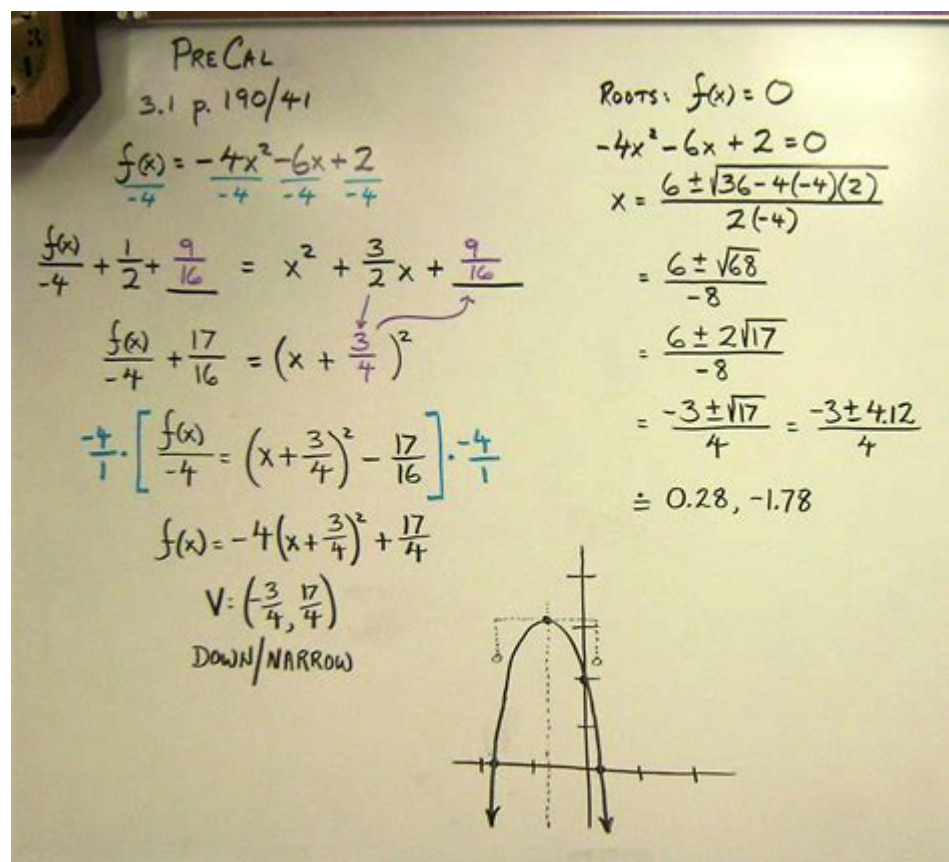 PRECAL
3.1 p. 190/41
f(x) = -4x² - 6x + 2
-4 -4 -4 -4
f(x)/-4 + 1/2 + 9/16 = x² + 3/2 x + 9/16
f(x)/-4 + 17/16 = (x + 3/4)²
-4/1 · [ f(x)/-4 = (x + 3/4)² - 17/16 ] · -4/1
f(x) = -4(x + 3/4)² + 17/4
V: (-3/4, 17/4)
DOWN/NARROW
ROOTS: f(x) = 0
-4x² - 6x + 2 = 0
x = 6 ± √36 - 4(-4)(2) / 2(-4)
= 6 ± √68 / -8
= 6 ± 2√17 / -8
= -3 ± √17 / 4 = -3 ± 4.12 / 4
≐ 0.28, -1.78